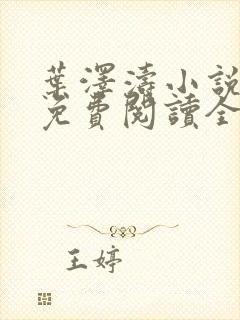 葉澤濤小說
免費閱讀全
王婷